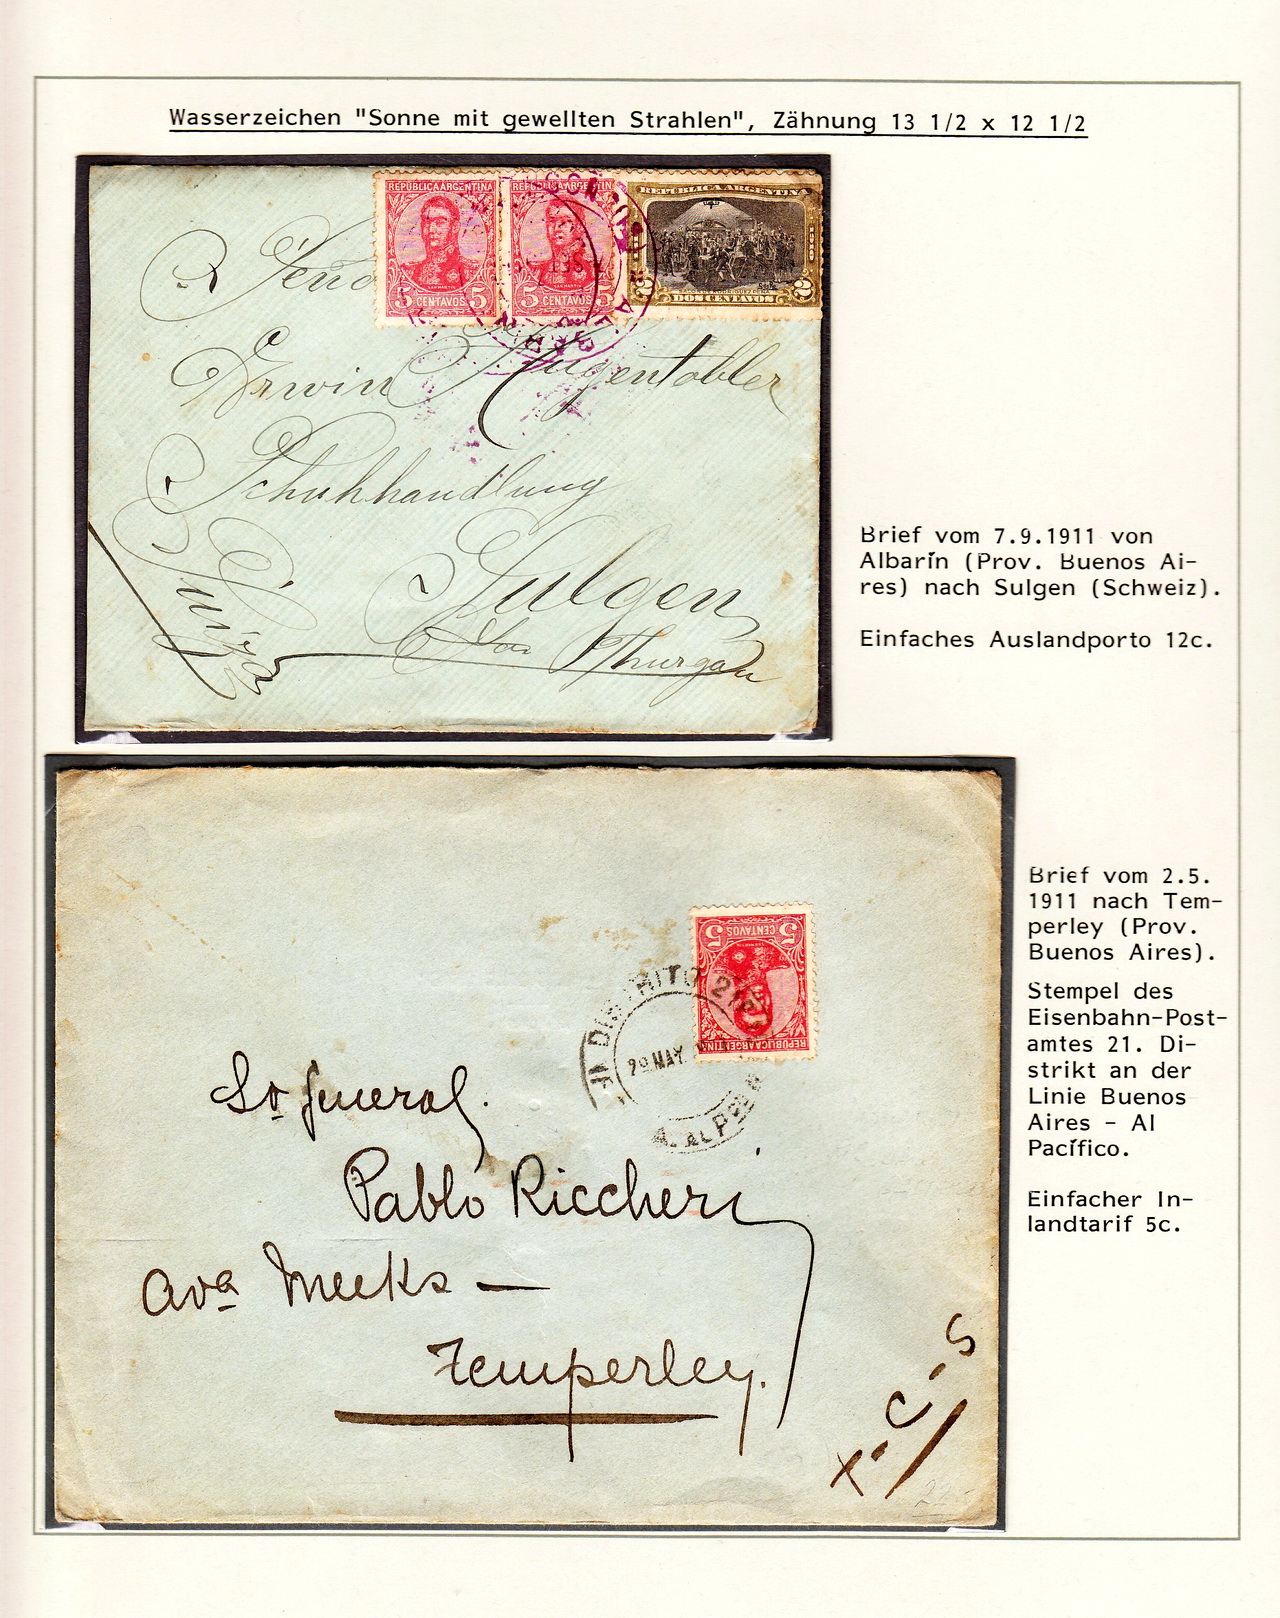 Wasserzeichen "Sonne mit gewellten Strahlen", Zähnung 13 1/2 x 12 1/2
REPÚBLICA ARGENTINA
SAN MARTIN
5 CENTAVOS 5
REPÚBLICA ARGENTINA
SAN MARTIN
5 CENTAVOS 5
REPÚBLICA ARGENTINA
2 DOS CENTAVOS 2
Señor
Erwin Hugentobler
Schuhhandlung
Sulgen
Thurgau
Suiza
Brief vom 7.9.1911 von
Albarín (Prov. Buenos Ai-
res) nach Sulgen (Schweiz).
Einfaches Auslandporto 12c.
5 CENTAVOS 5
SAN MARTIN
REPÚBLICA ARGENTINA
DISTRITO 21
29 MAY
AL P
Sr General.
Pablo Riccheri
Ava Meeks —
Temperley.
Brief vom 2.5.
1911 nach Tem-
perley (Prov.
Buenos Aires).
Stempel des
Eisenbahn-Post-
amtes 21. Di-
strikt an der
Linie Buenos
Aires - Al
Pacífico.
Einfacher In-
landtarif 5c.